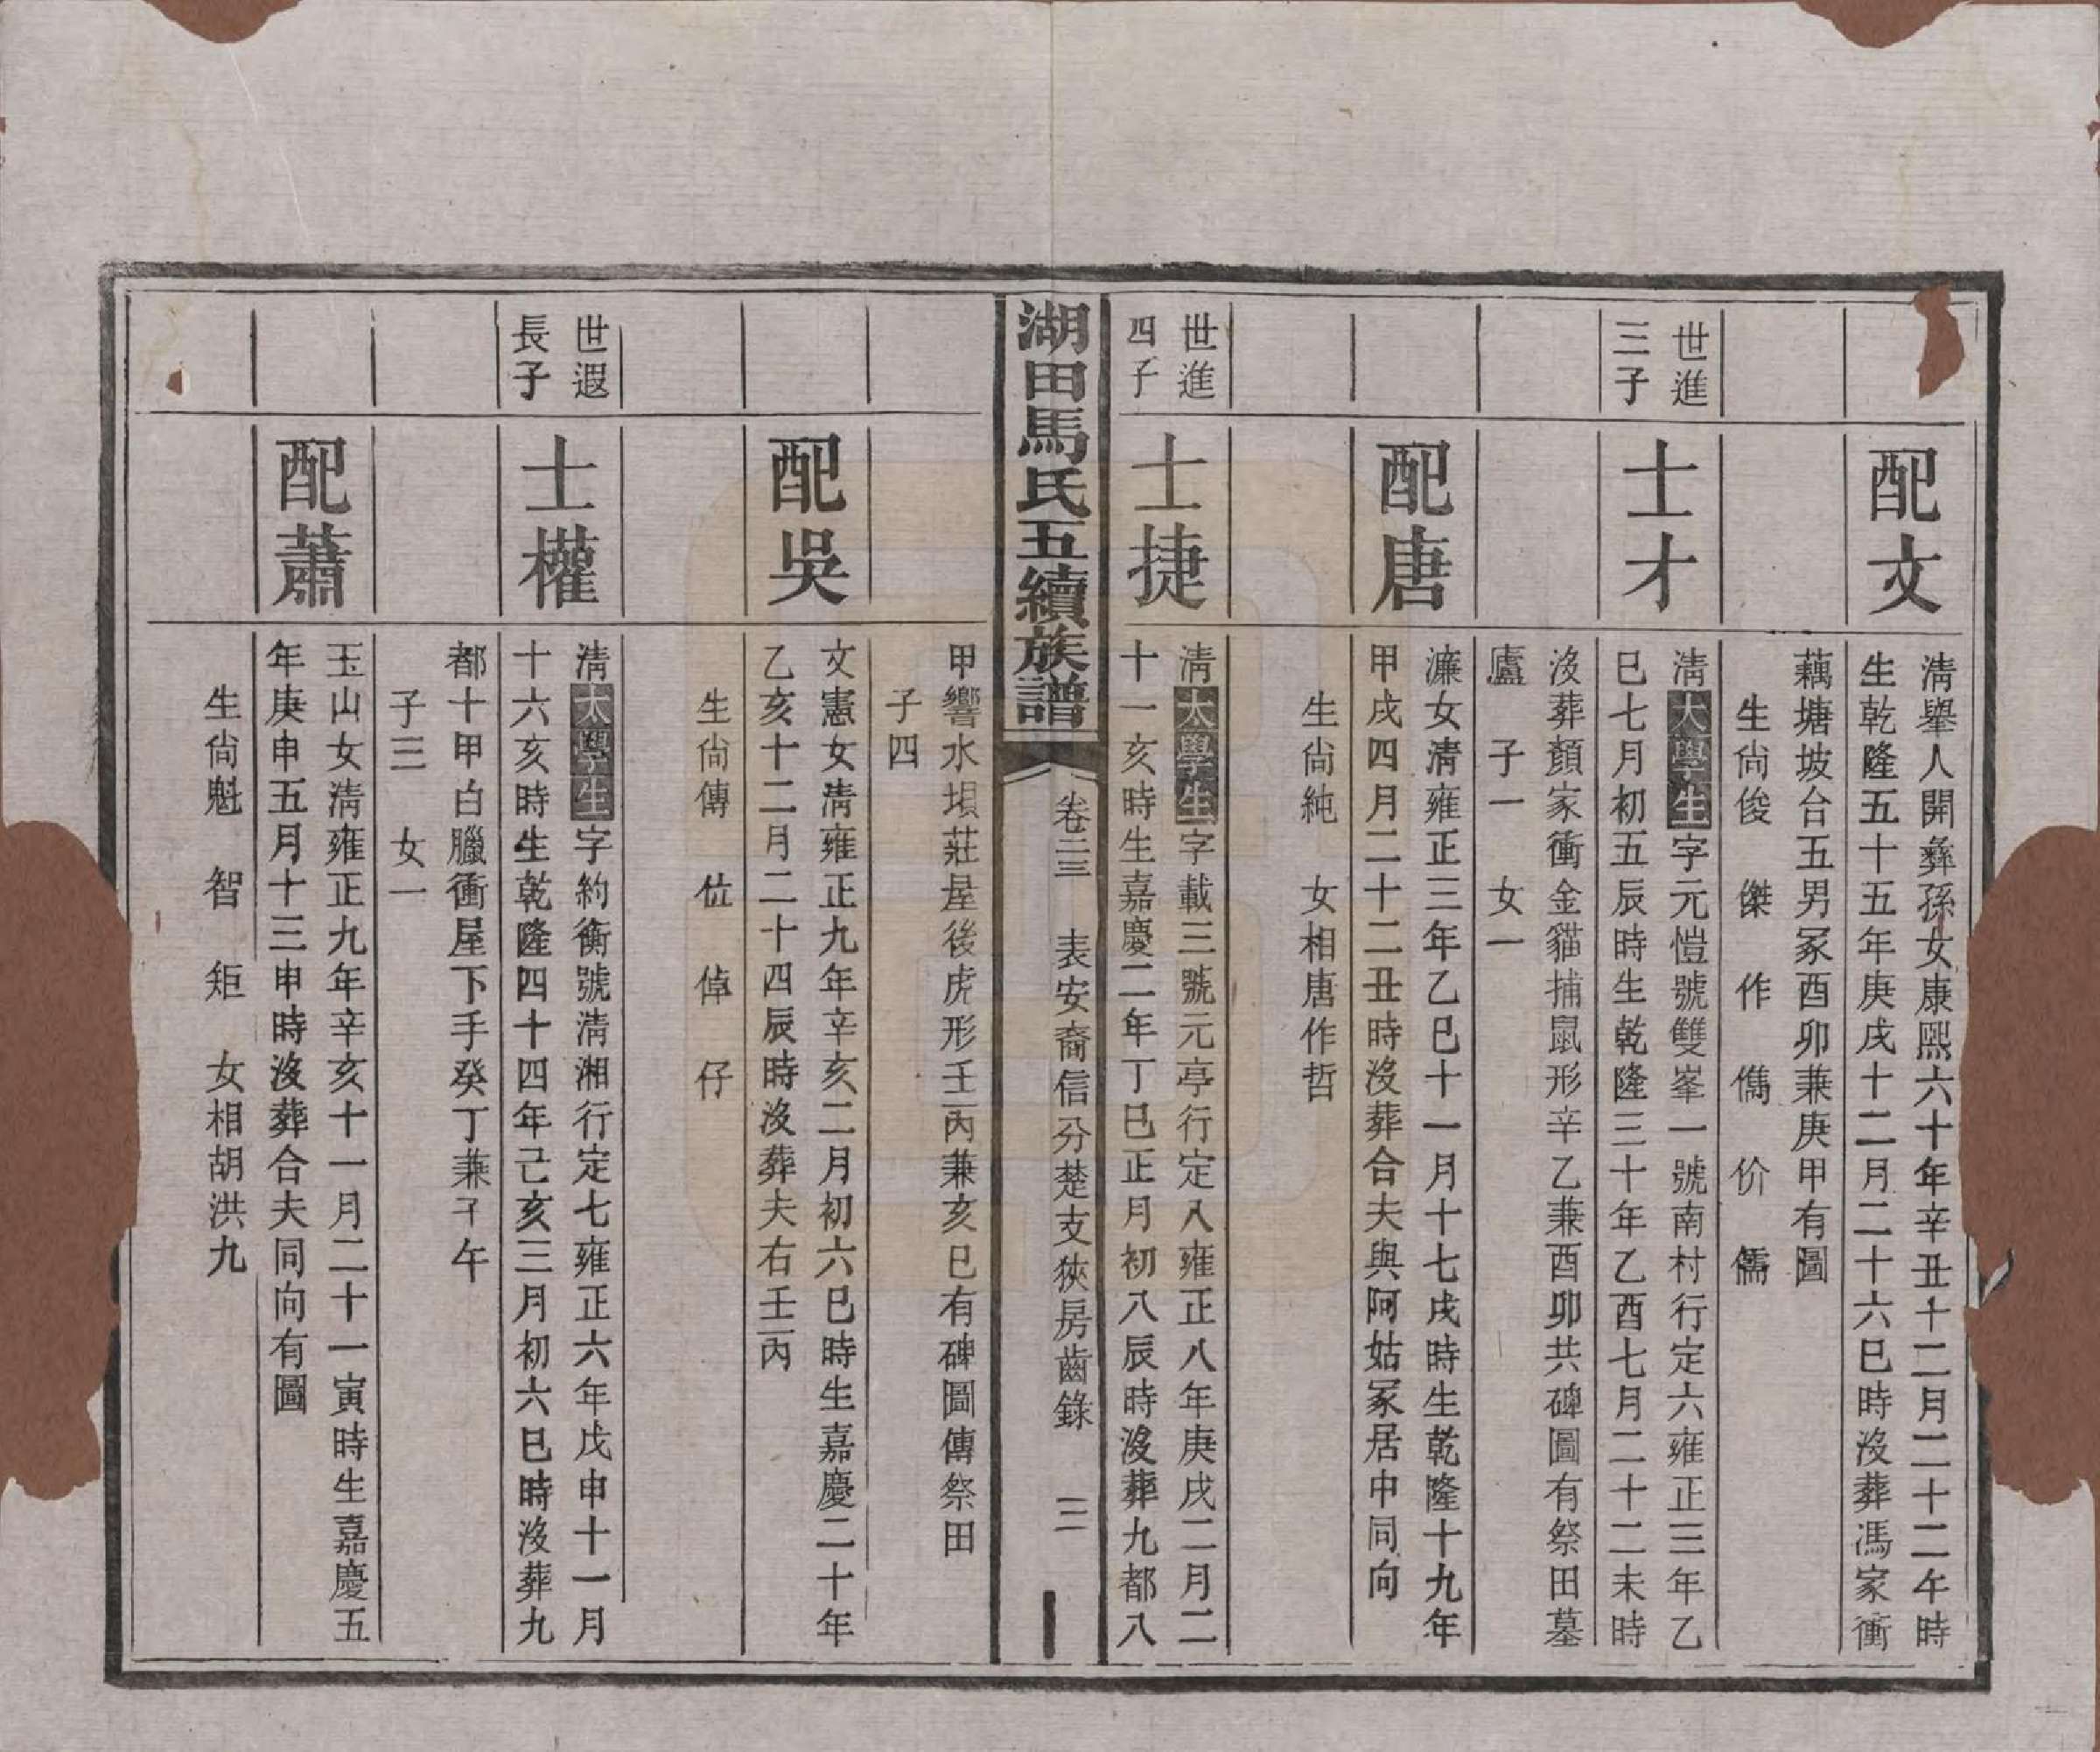 配文
清舉人開彝孫女康熙六十年辛丑十二月二十二午時
生乾隆五十五年庚戌十二月二十六巳時沒葬馮家衝
藕塘坡台五男冢酉卯兼庚甲有圖
生尙俊 傑 作 儁 价 儒
世進
三子
士才
清太學生字元愷號雙峯一號南村行定六雍正三年乙
巳七月初五辰時生乾隆三十年乙酉七月二十二未時
沒葬顏家衝金貓捕鼠形辛乙兼酉卯共碑圖有祭田墓
廬 子一 女一
配唐
濂女清雍正三年乙巳十一月十七戌時生乾隆十九年
甲戌四月二十二丑時沒葬合夫與阿姑冢居中同向
生尙純 女相唐作哲
世進
四子
士捷
清太學生字載三號元亭行定八雍正八年庚戌二月二
十一亥時生嘉慶二年丁巳正月初八辰時沒葬九都八
湖田馬氏五續族譜
卷二三 表安裔信分楚支狹房齒錄 三
甲響水垻莊屋後虎形壬丙兼亥巳有碑圖傳祭田
子四
配吳
文憲女清雍正九年辛亥二月初六巳時生嘉慶二十年
乙亥十二月二十四辰時沒葬夫右壬丙
生尙傳 位 倬 仔
世遐
長子
士權
清太學生字約衡號清湘行定七雍正六年戊申十一月
十六亥時生乾隆四十四年己亥三月初六巳時沒葬九
都十甲白臘衝屋下手癸丁兼子午
子三 女一
配蕭
玉山女清雍正九年辛亥十一月二十一寅時生嘉慶五
年庚申五月十三申時沒葬合夫同向有圖
生尙魁 智 矩 女相胡洪九